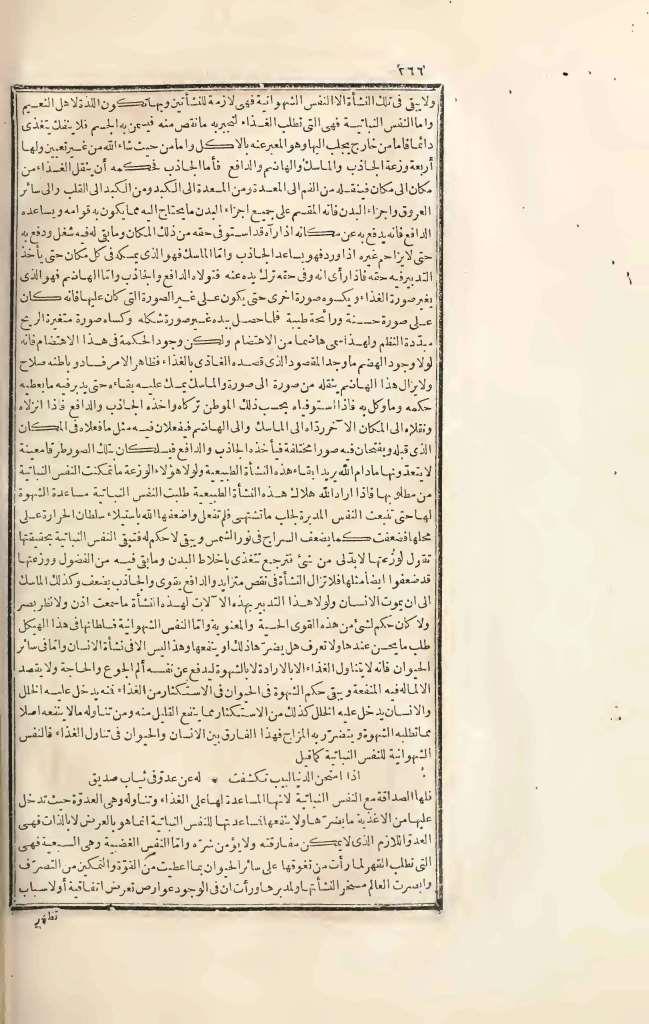 ٢٦٦
ولا يبقى فى تلك النشأة الا النفس الشهوانية فهى لازمة للنشأتين وبها تكون اللذة لاهل النعيم
واما النفس النباتية فهى التى تطلب الغذاء لتجبر به ما نقص منه فيسمن به الجسم فلا ينفك يتغذى
دائما فاما من خارج يجلب اليها وهو المعبر عنه بالاكل واما من حيث شاء الله من غير تعيين ولها
أربعة وزعة الجاذب والماسك والهاضم والدافع فأما الجاذب فحكمه أن ينقل الغذاء من
مكان الى مكان فينقله من الفم الى المعدة ومن المعدة الى الكبد ومن الكبد الى القلب والى سائر
العروق واجزاء البدن فانه المقسم على جميع اجزاء البدن ما يحتاج اليه مما يكون به قوامه ويساعده
الدافع فانه يدفع به عن مكانه اذا رآه قد استوفى حقه من ذلك المكان وما بقى له فيه شغل ودفع به
حتى لا يزاحم غيره اذا ورد فهو يساعد الجاذب واما الماسك فهو الذى يمسكه فى كل مكان حتى يأخذ
التدبير فيه حقه فاذا رأى انه وفى حقه ترك يده عنه فتولاه الدافع والجاذب واما الهاضم فهو الذى
يغير صورة الغذاء ويكسوه صورة اخرى حتى يكون على غير الصورة التى كان عليها فانه كان
على صورة حسنة ورائحة طيبة فلما حصل بيده غير صورة شكله وكساه صورة متغيرة الريح
مبددة النظم ولهذا سمى هاضما من الاهتضام ولكن وجود الحكمة فى هذا الاهتضام فانه
لولا وجود الهضم ما وجد المقصود الذى قصده الغاذى بالغذاء فظاهر الامر فساد وباطنه صلاح
ولا يزال هذا الهاضم ينقله من صورة الى صورة والماسك يمسك عليه بقاءه حتى يدبر فيه ما يعطيه
حكمه وما وكل به فاذا استوفياه بحسب ذلك الموطن تركاه واخذه الجاذب والدافع فاذا انزلاه
ونقلاه الى المكان الآخر رداه الى الماسك والى الهاضم فيفعلان فيه مثل ما فعلاه فى المكان
الذى قبله ويفتحان فيه صورا مختلفة فيأخذه الجاذب والدافع فيسلكان بتلك الصور طرقا معينة
لا يتعدونها مادام الله يريد ابقاء هذه النشأة الطبيعية ولولا هؤلاء الوزعة ما تمكنت النفس النباتية
من مطلوبها فاذا اراد الله هلاك هذه النشأة الطبيعية طلبت النفس النباتية مساعدة الشهوة
لها حتى تنبعث النفس المدبرة لجلب ما تشتهى فلم تفعل واضعفها الله باستيلاء سلطان الحرارة على
محلها فضعفت كما يضعف السراج فى نور الشمس ويبقى لا حكم له فتبقى النفس النباتية بحقيقتها
تقول لوزعتها لا بد لى من شئ فترجع تتغذى باخلاط البدن وما بقى فيه من الفضول ووزعتها
قد ضعفوا ايضا مثلها فلا تزال النشأة فى نقص متزايد والدافع يقوى والجاذب يضعف وكذلك الماسك
الى ان يموت الانسان ولولا هذا التدبير بهذه الآلات لهذه النشأة ما سمعت اذن ولا نظر بصر
ولا كان حكم لشئ من هذه القوى الحسية والمعنوية واما النفس الشهوانية فسلطانها فى هذا الهيكل
طلب ما يحسن عندها ولا تعرف هل يضرها ذلك او ينفعها وهذا ليس الا فى نشأة الانسان واما فى سائر
الحيوان فانه لا يتناول الغذاء الا بالارادة لا بالشهوة ليدفع عن نفسه ألم الجوع والحاجة ولا يقصد
الا لما له فيه المنفعة ويبقى حكم الشهوة فى الحيوان فى الاستكثار من الغذاء فنه يدخل عليه الخلل
والانسان يدخل عليه الخلل كذلك من الاستكثار مما ينفع القليل منه ومن تناوله ما لا ينفعه اصلا
مما تطلبه الشهوة ويتضرر به المزاج فهذا الفارق بين الانسان والحيوان فى تناول الغذاء فالنفس
الشهوانية للنفس النباتية كما قيل
اذا امتحن الدنيا لبيب تكشفت * له عن عدو فى ثياب صديق
فلها الصداقة مع النفس النباتية لانها المساعدة لها على الغذاء وتناوله وهى العدوة حيث تدخل
عليها من الاغذية ما يضرها ولا ينفعها فمساعدتها للنفس النباتية انما هو بالعرض لا بالذات فهى
العدو اللازم الذى لا يمكن مفارقته ولا يؤمن شره واما النفس الغضبية وهى السبعية فهى
التى تطلب القهر لما رأت من تفوقها على سائر الحيوان بما اعطيت من القوة والتمكين من التصرف
وابصرت العالم مسخر النشأتها ولمدبرها ورأت ان فى الوجود عوارض تعرض اتفاقية أو لاسباب
تظهر